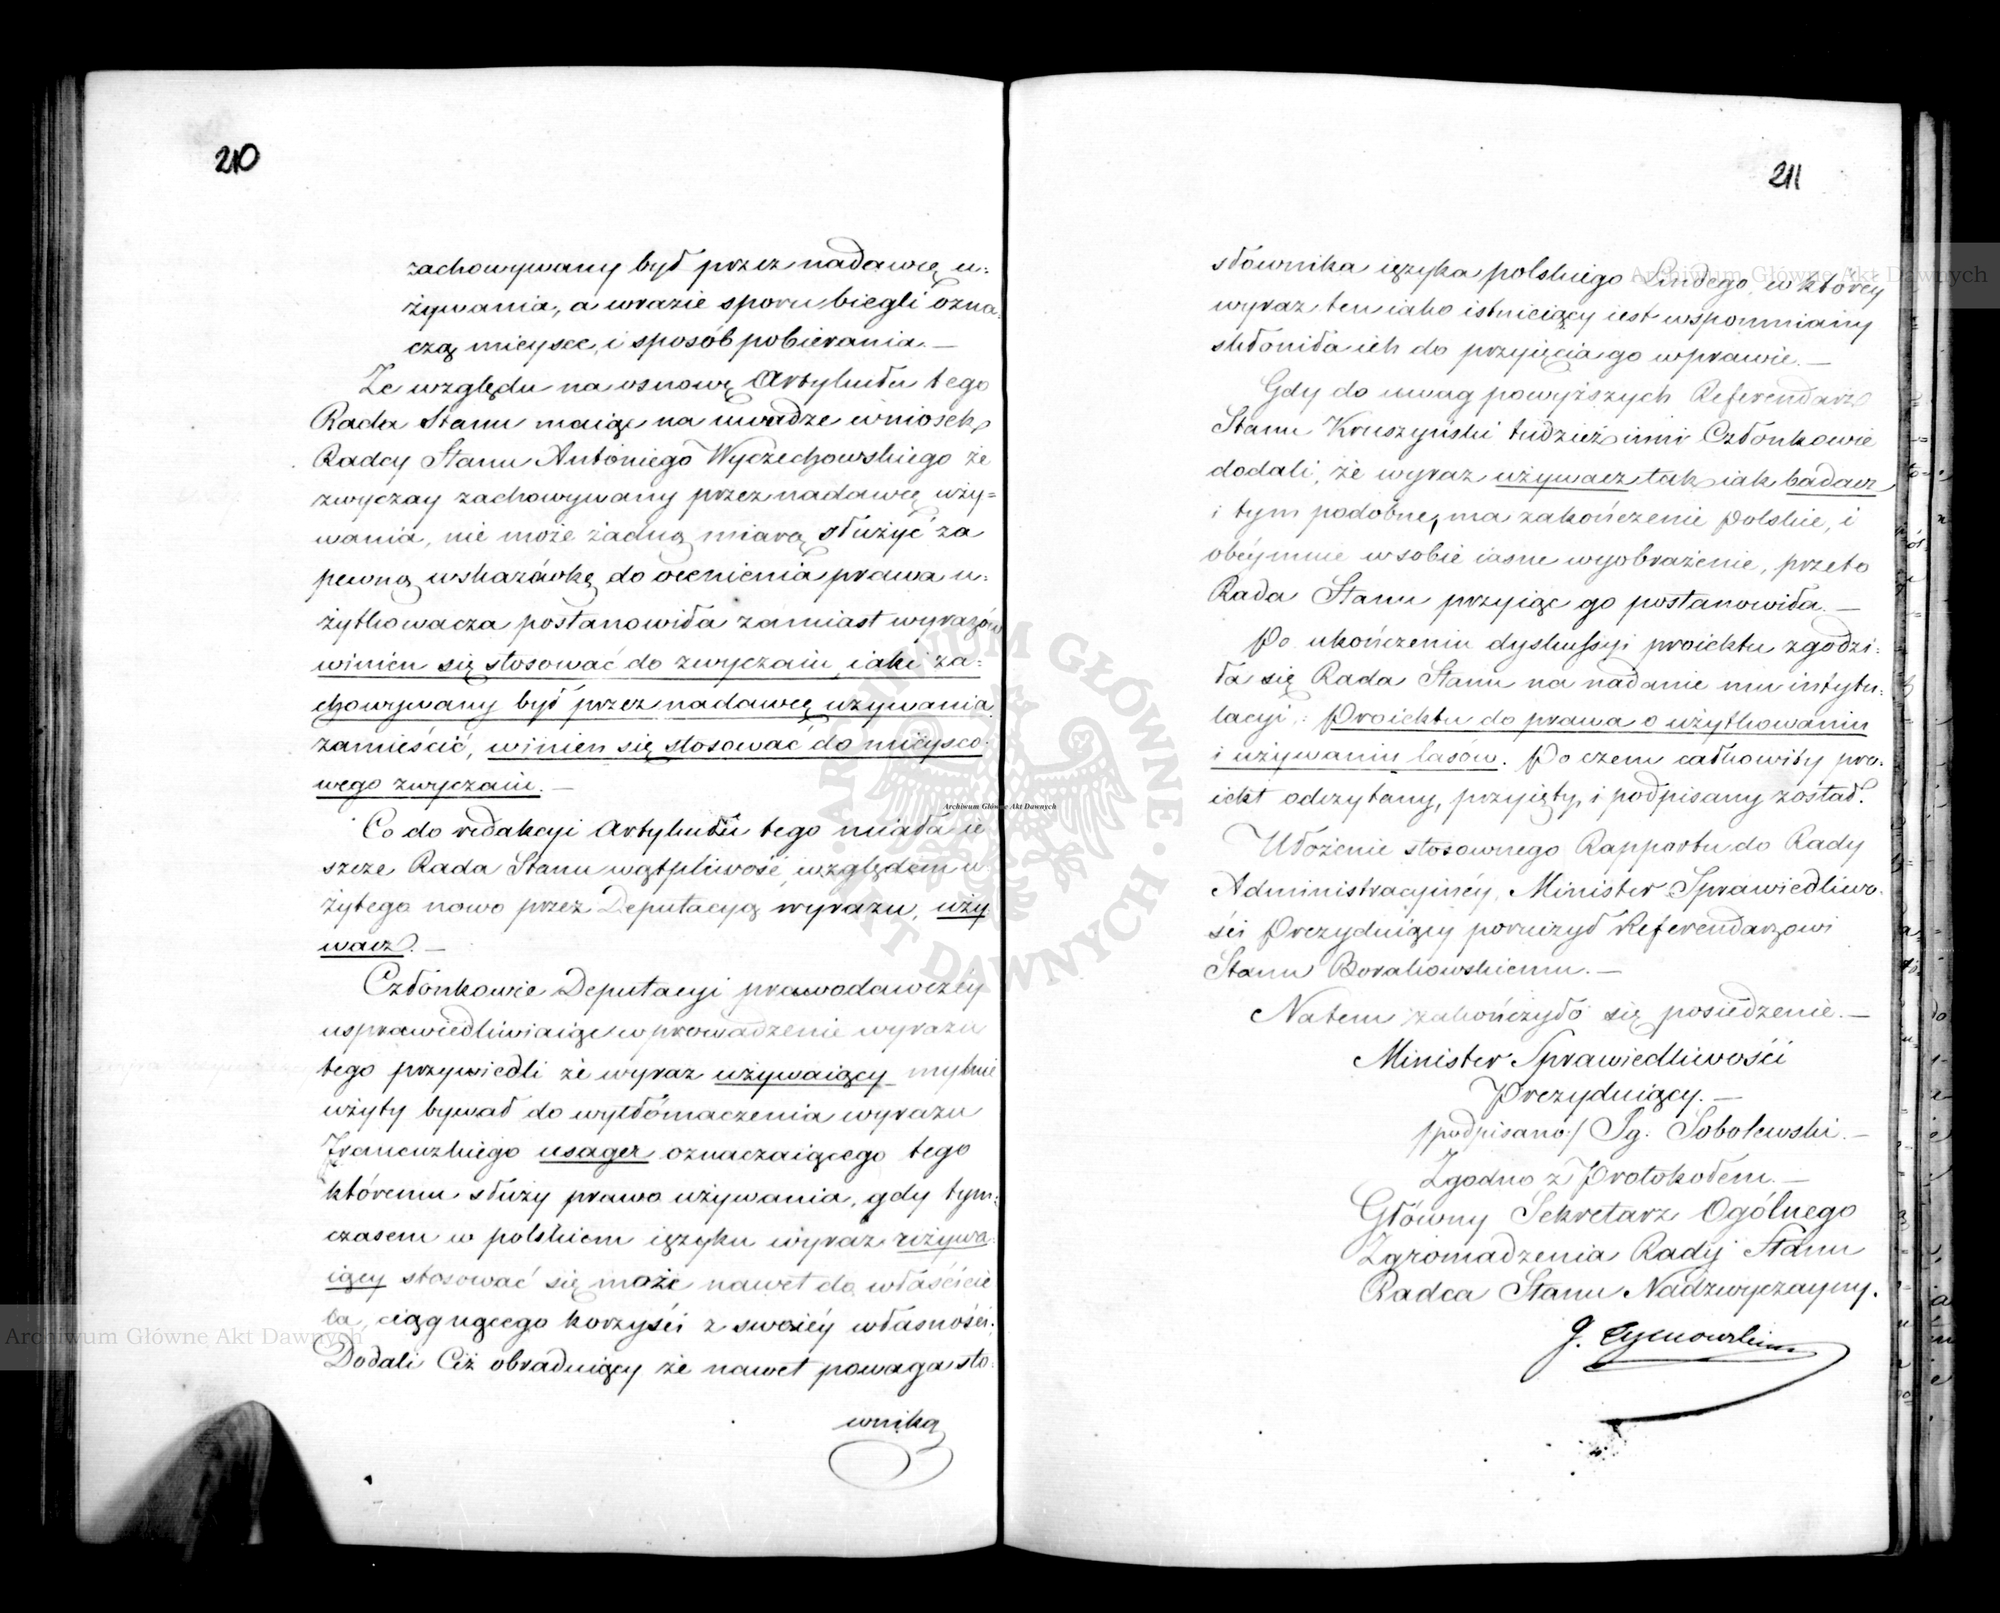 210
zachowywany był przez nadawcę u-
żywania, a w razie sporu biegli ozna-
czą mieysce, i sposób pobierania. —
Ze względu na osnowę Artykułu tego
Rada Stanu maiąc na uwadze wniosek
Radcy Stanu Antoniego Wyczechowskiego że
zwyczay zachowywany przez nadawcę uży-
wania, nie może żadną miarą służyć za
pewną wskazówkę do ocenienia prawa u-
żytkowacza postanowiła zamiast wyrazów
winien się stosować do zwyczaiu, iaki za-
chowywany był przez nadawcę używania
zamieścić, winien się stosować do mieysco-
wego zwyczaiu. —
Co do redakcyi Artykułu tego miała ie
szcze Rada Stanu wątpliwość, względem u
żytego nowo przez Deputacyą wyrazu, uży
wacz. —
Członkowie Deputacyi prawodawczéy
usprawiedliwiaiąc wprowadzenie wyrazu
tego przywiedli że wyraz używaiący mylnie
użyty bywał do wytłómaczenia wyrazu
Francuzkiego usager oznaczaiącego tego
któremu służy prawo używania, gdy tym-
czasem w polskiem ięzyku wyraz używa-
iący stosować się może nawet do właścicie
la, ciągnącego korzyści z swoiéy własności.
Dodali Ciż obraduiący że nawet powaga sło-
wnika
211
słownika ięzyka polskiego Lindego, w którey
wyraz ten iako istnieiący iest wspomniany
skłoniła ich do przyięcia go w prawie. —
Gdy do uwag powyższych Referendarz
Stanu Kruszyński tudzież inni Członkowie
dodali, że wyraz używacz tak iak badacz
i tym podobne, ma zakończenie Polskie, i
obéymuie w sobie iasne wyobrażenie, przeto
Rada Stanu przyiąć go postanowiła. —
Po ukończeniu dyskussyi proiektu zgodzi-
ła się Rada Stanu na nadanie mu intytu-
lacyi: Proiektu do prawa o użytkowaniu
i używaniu lasów. Po czem całkowity pro-
iekt odczytany, przyięty, i podpisany został.
Ułożenie stosownego Rapportu do Rady
Administracyinéy, Minister Sprawiedliwo-
ści Prezyduiący poruczył Referendarzowi
Stanu Borakowskiemu. —
Na tem zakończyło się posiedzenie. —
Minister Sprawiedliwości
Prezyduiący. —
/podpisano/ Ig. Sobolewski. —
Zgodno z Protokołem. —
Główny Sekretarz Ogólnego
Zgromadzenia Rady Stanu
Radca Stanu Nadzwyczayny.
J. Tymowski
Archiwum Główne Akt Dawnych
Archiwum Główne Akt Dawnych
Archiwum Główne Akt Dawnych
ARCHIWUM GŁÓWNE AKT DAWNYCH